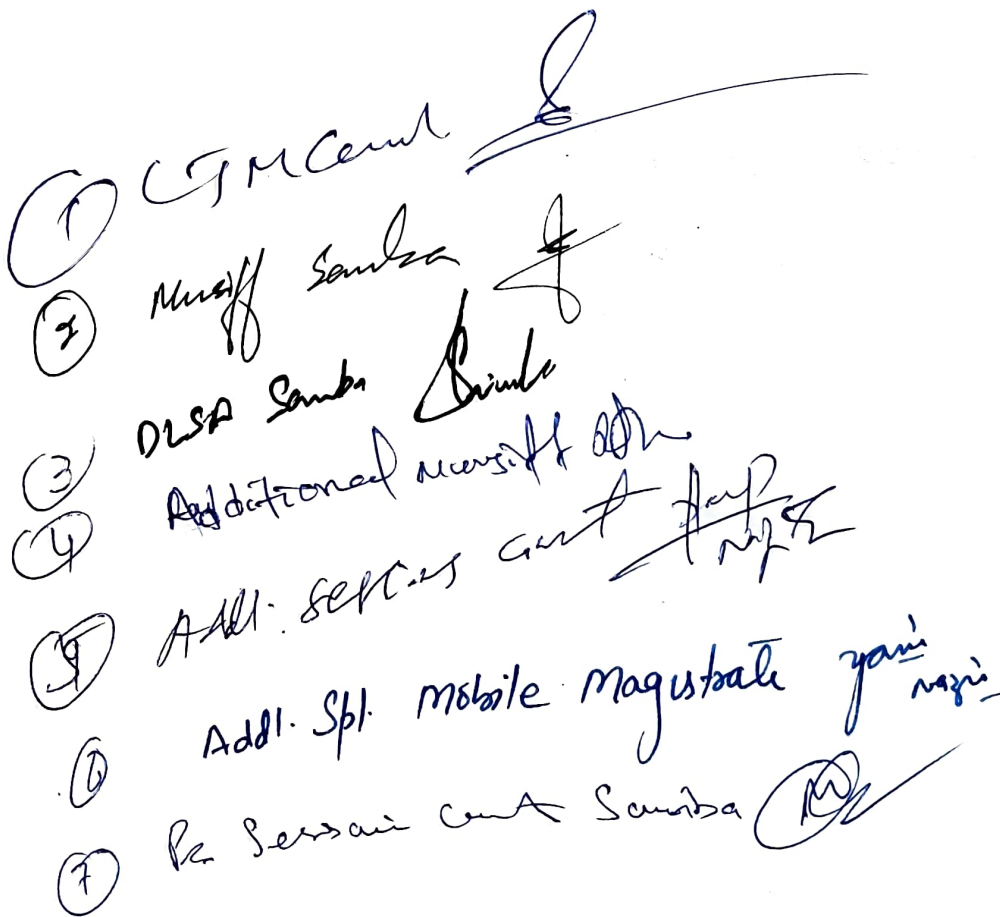 ① CJM Court
② Munsiff Samba
③ DLSA Samba
④ Additional Munsiff
⑤ Addl. Sessions Court
⑥ Addl. Spl. Mobile Magistrate
⑦ Pr. Session Court Samba